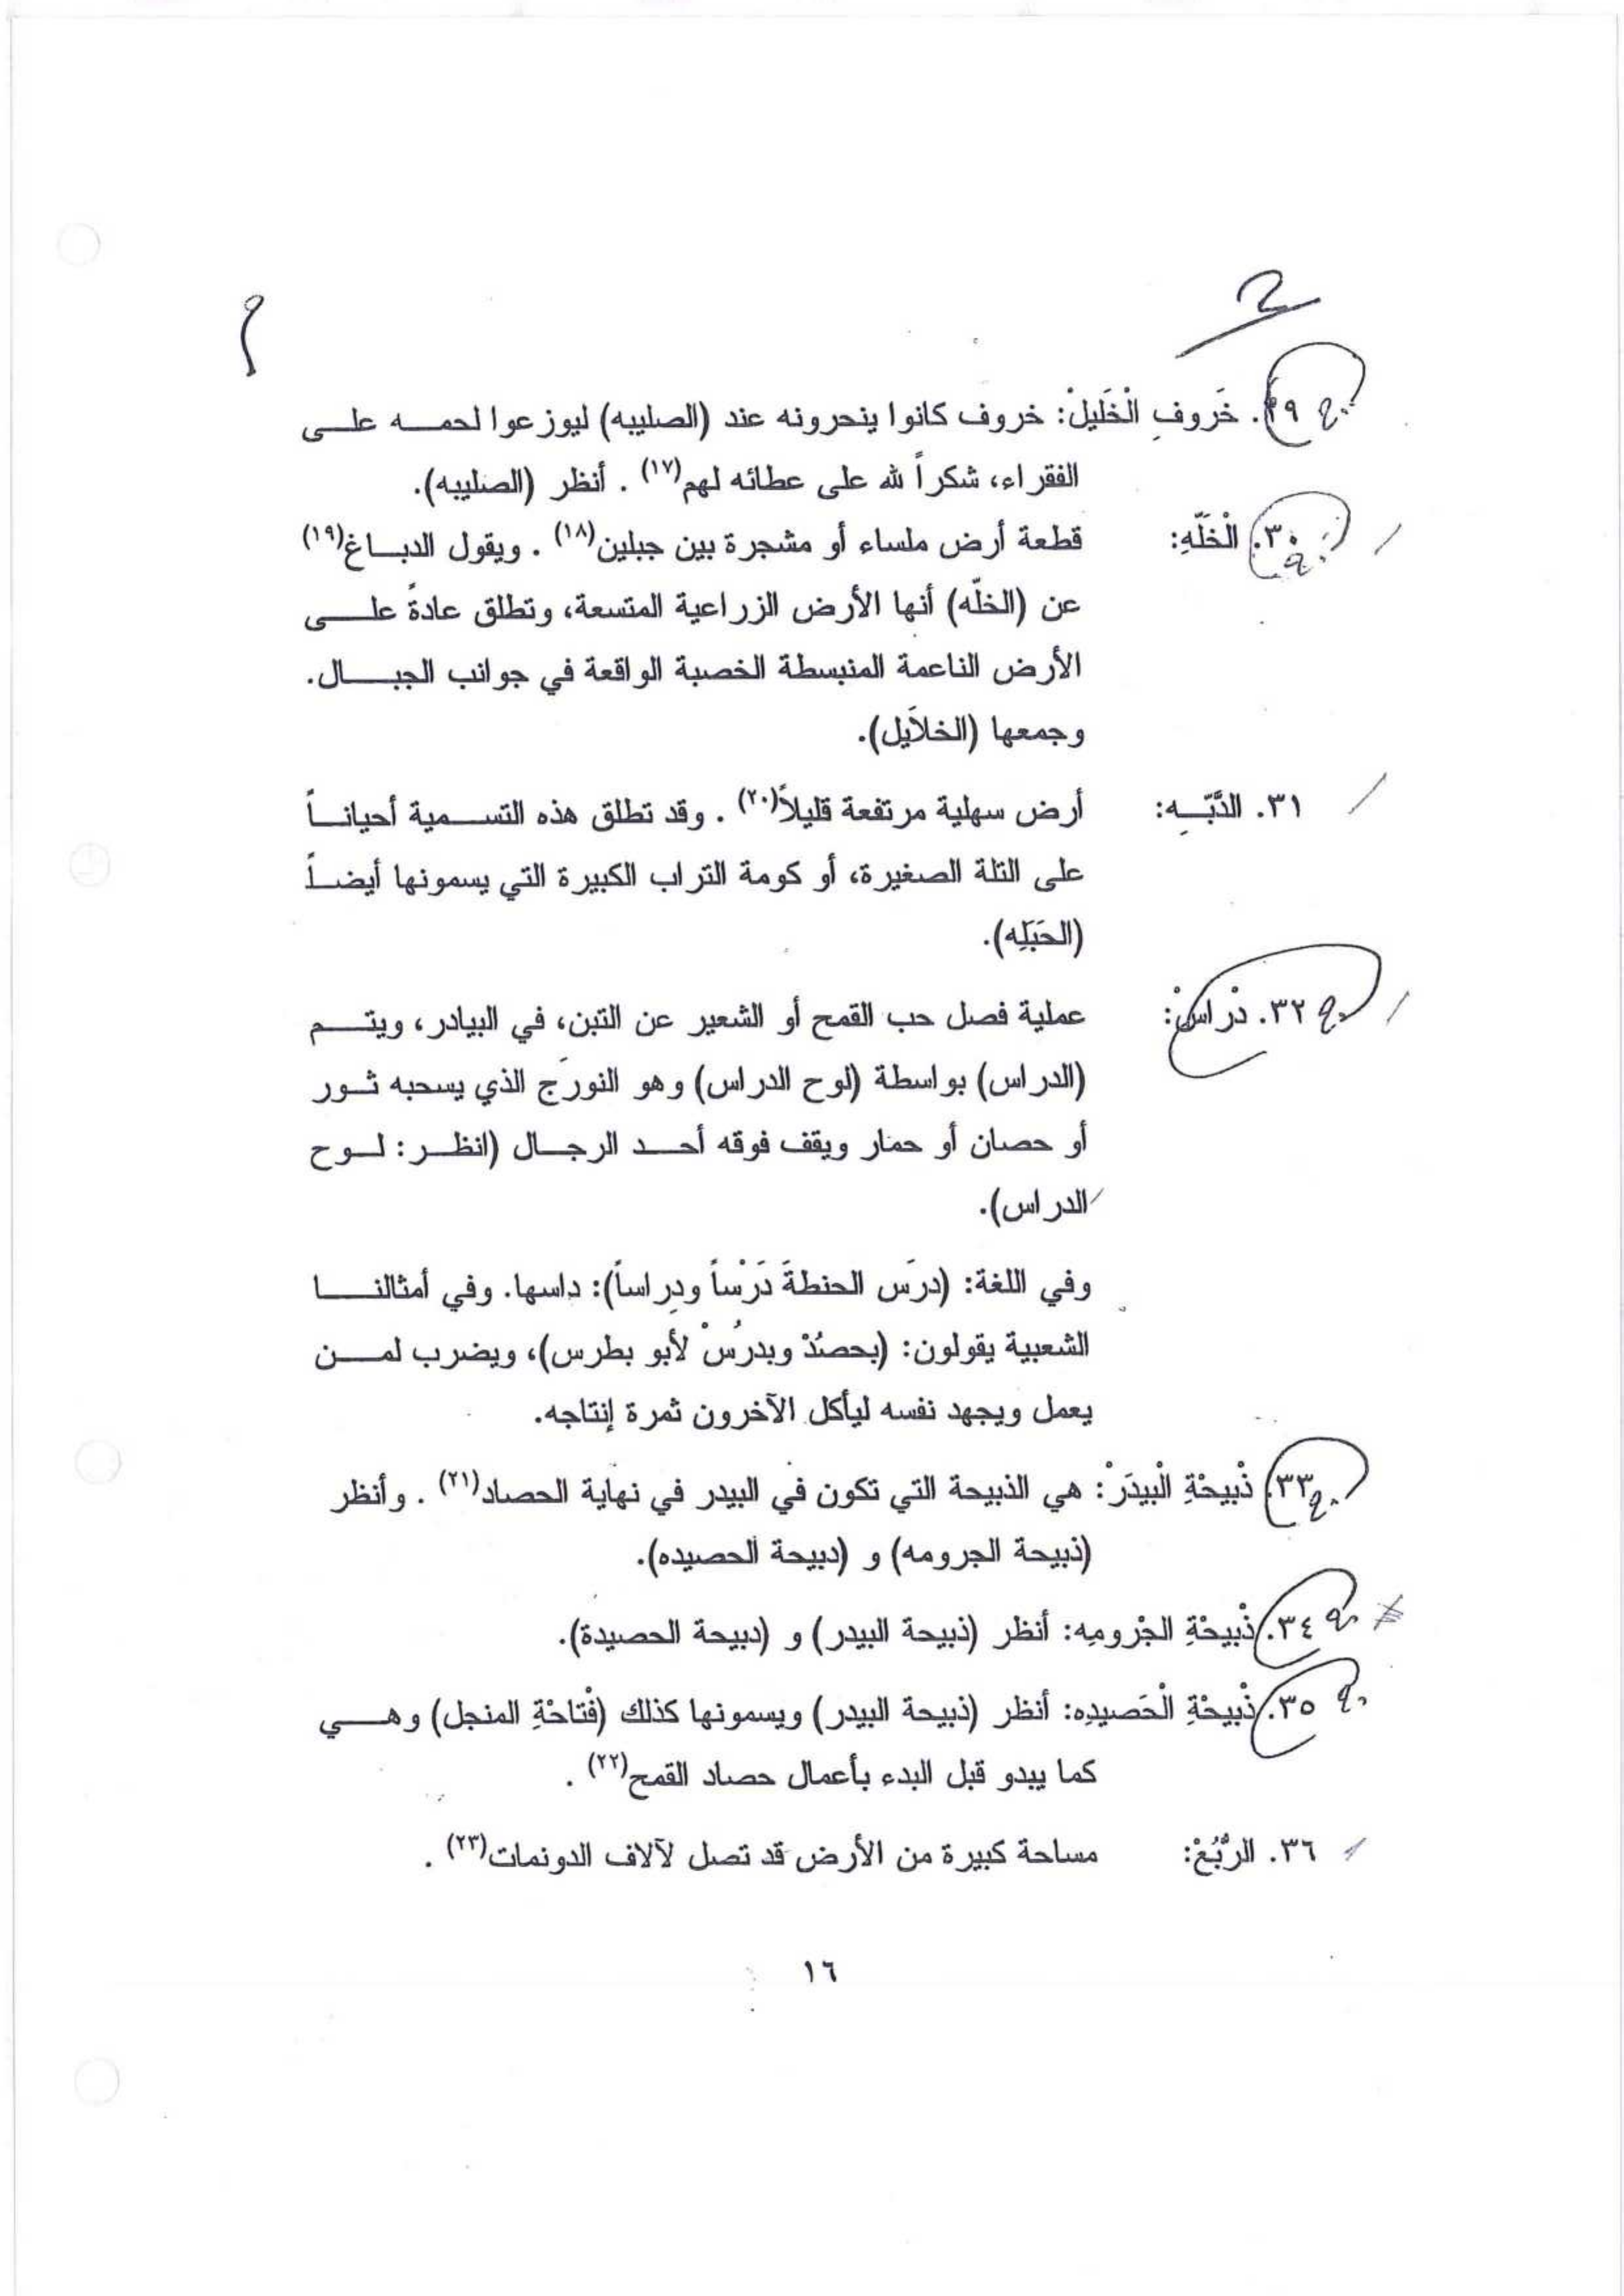 ٢٩. خَروفِ الْخَليلْ: خروف كانوا ينحرونه عند (الصليبه) ليوزعوا لحمه على
الفقراء، شكراً لله على عطائه لهم(١٧) . أنظر (الصليبه).
٣٠. الْخَلّهِ: قطعة أرض ملساء أو مشجرة بين جبلين(١٨) . ويقول الدباغ(١٩)
عن (الخلّه) أنها الأرض الزراعية المتسعة، وتطلق عادةً على
الأرض الناعمة المنبسطة الخصبة الواقعة في جوانب الجبال.
وجمعها (الخلايل).
٣١. الدَّبّهِ: أرض سهلية مرتفعة قليلاً(٢٠) . وقد تطلق هذه التسمية أحياناً
على التلة الصغيرة، أو كومة التراب الكبيرة التي يسمونها أيضاً
(الحَبَلِه).
٣٢. دْراسْ: عملية فصل حب القمح أو الشعير عن التبن، في البيادر، ويتم
(الدراس) بواسطة (لوح الدراس) وهو النورَج الذي يسحبه ثور
أو حصان أو حمار ويقف فوقه أحد الرجال (انظر: لوح
الدراس).
وفي اللغة: (درَس الحنطةَ دَرْساً ودِراساً): داسها. وفي أمثالنا
الشعبية يقولون: (بحصُدْ وبدرُسْ لأبو بطرس)، ويضرب لمن
يعمل ويجهد نفسه ليأكل الآخرون ثمرة إنتاجه.
٣٣. ذْبيحْةِ الْبيدَرْ: هي الذبيحة التي تكون في البيدر في نهاية الحصاد(٢١) . وأنظر
(ذبيحة الجرومه) و (دبيحة الحصيده).
٣٤. ذْبيحْةِ الجْرومِه: أنظر (ذبيحة البيدر) و (دبيحة الحصيدة).
٣٥. ذْبيحْةِ الْحَصيدِه: أنظر (ذبيحة البيدر) ويسمونها كذلك (فْتاحْةِ المنجل) وهي
كما يبدو قبل البدء بأعمال حصاد القمح(٢٢) .
٣٦. الرُّبُعْ: مساحة كبيرة من الأرض قد تصل لآلاف الدونمات(٢٣) .
١٦